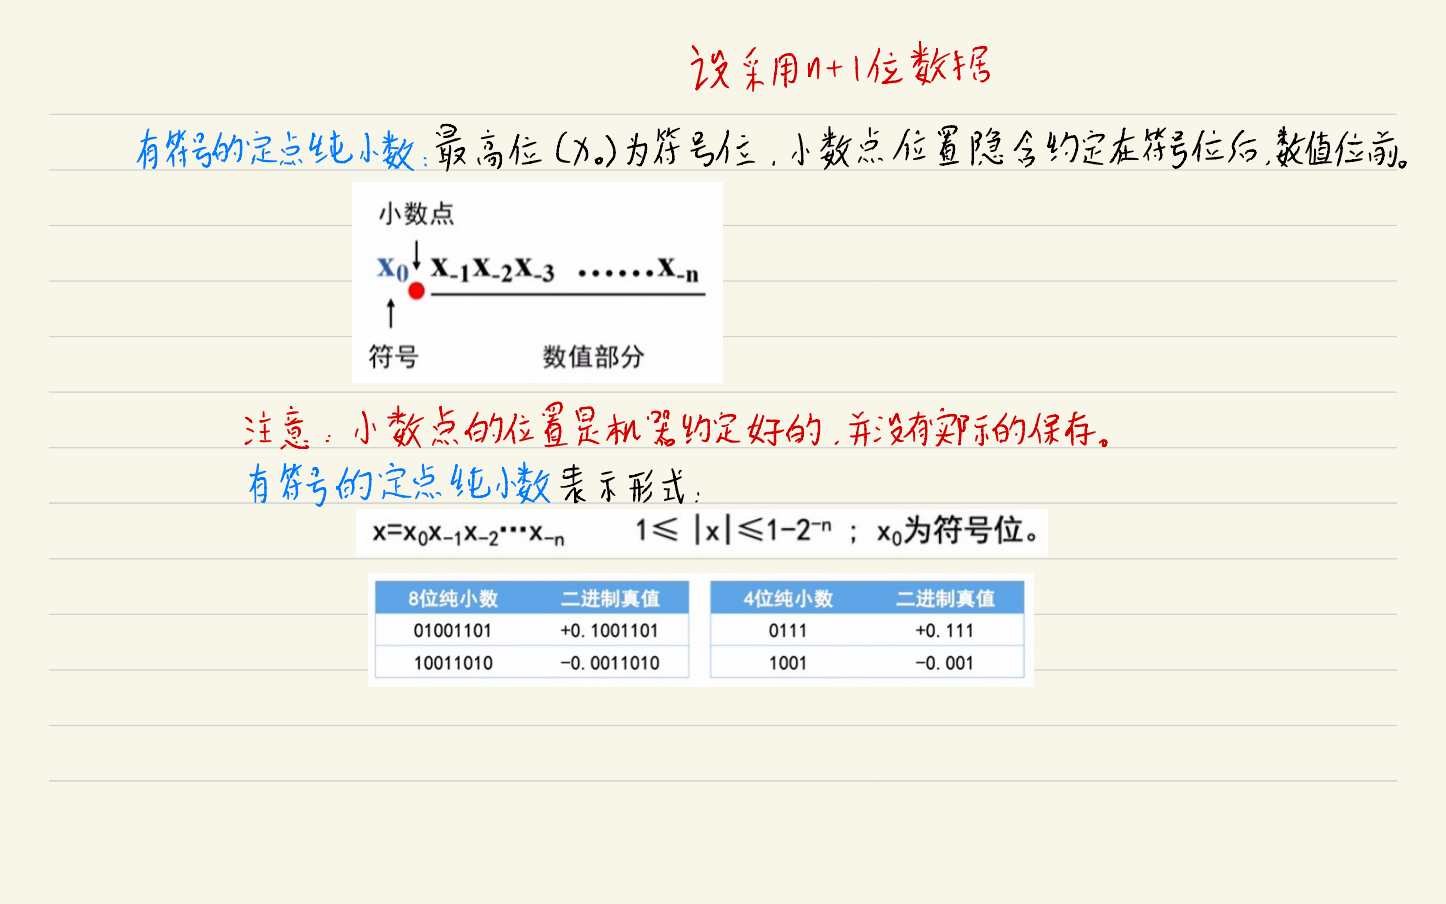 设采用n+1位数据
有符号的定点纯小数:最高位(x₀)为符号位,小数点位置隐含约定在符号位后,数值位前。
小数点
x₀ x₋₁x₋₂x₋₃ ……x₋ₙ
符号 数值部分
注意:小数点的位置是机器约定好的,并没有实际的保存。
有符号的定点纯小数表示形式:
x=x₀x₋₁x₋₂…x₋ₙ 1≤|x|≤1-2⁻ⁿ ; x₀为符号位。
8位纯小数 二进制真值 4位纯小数 二进制真值
01001101 +0.1001101 0111 +0.111
10011010 -0.0011010 1001 -0.001